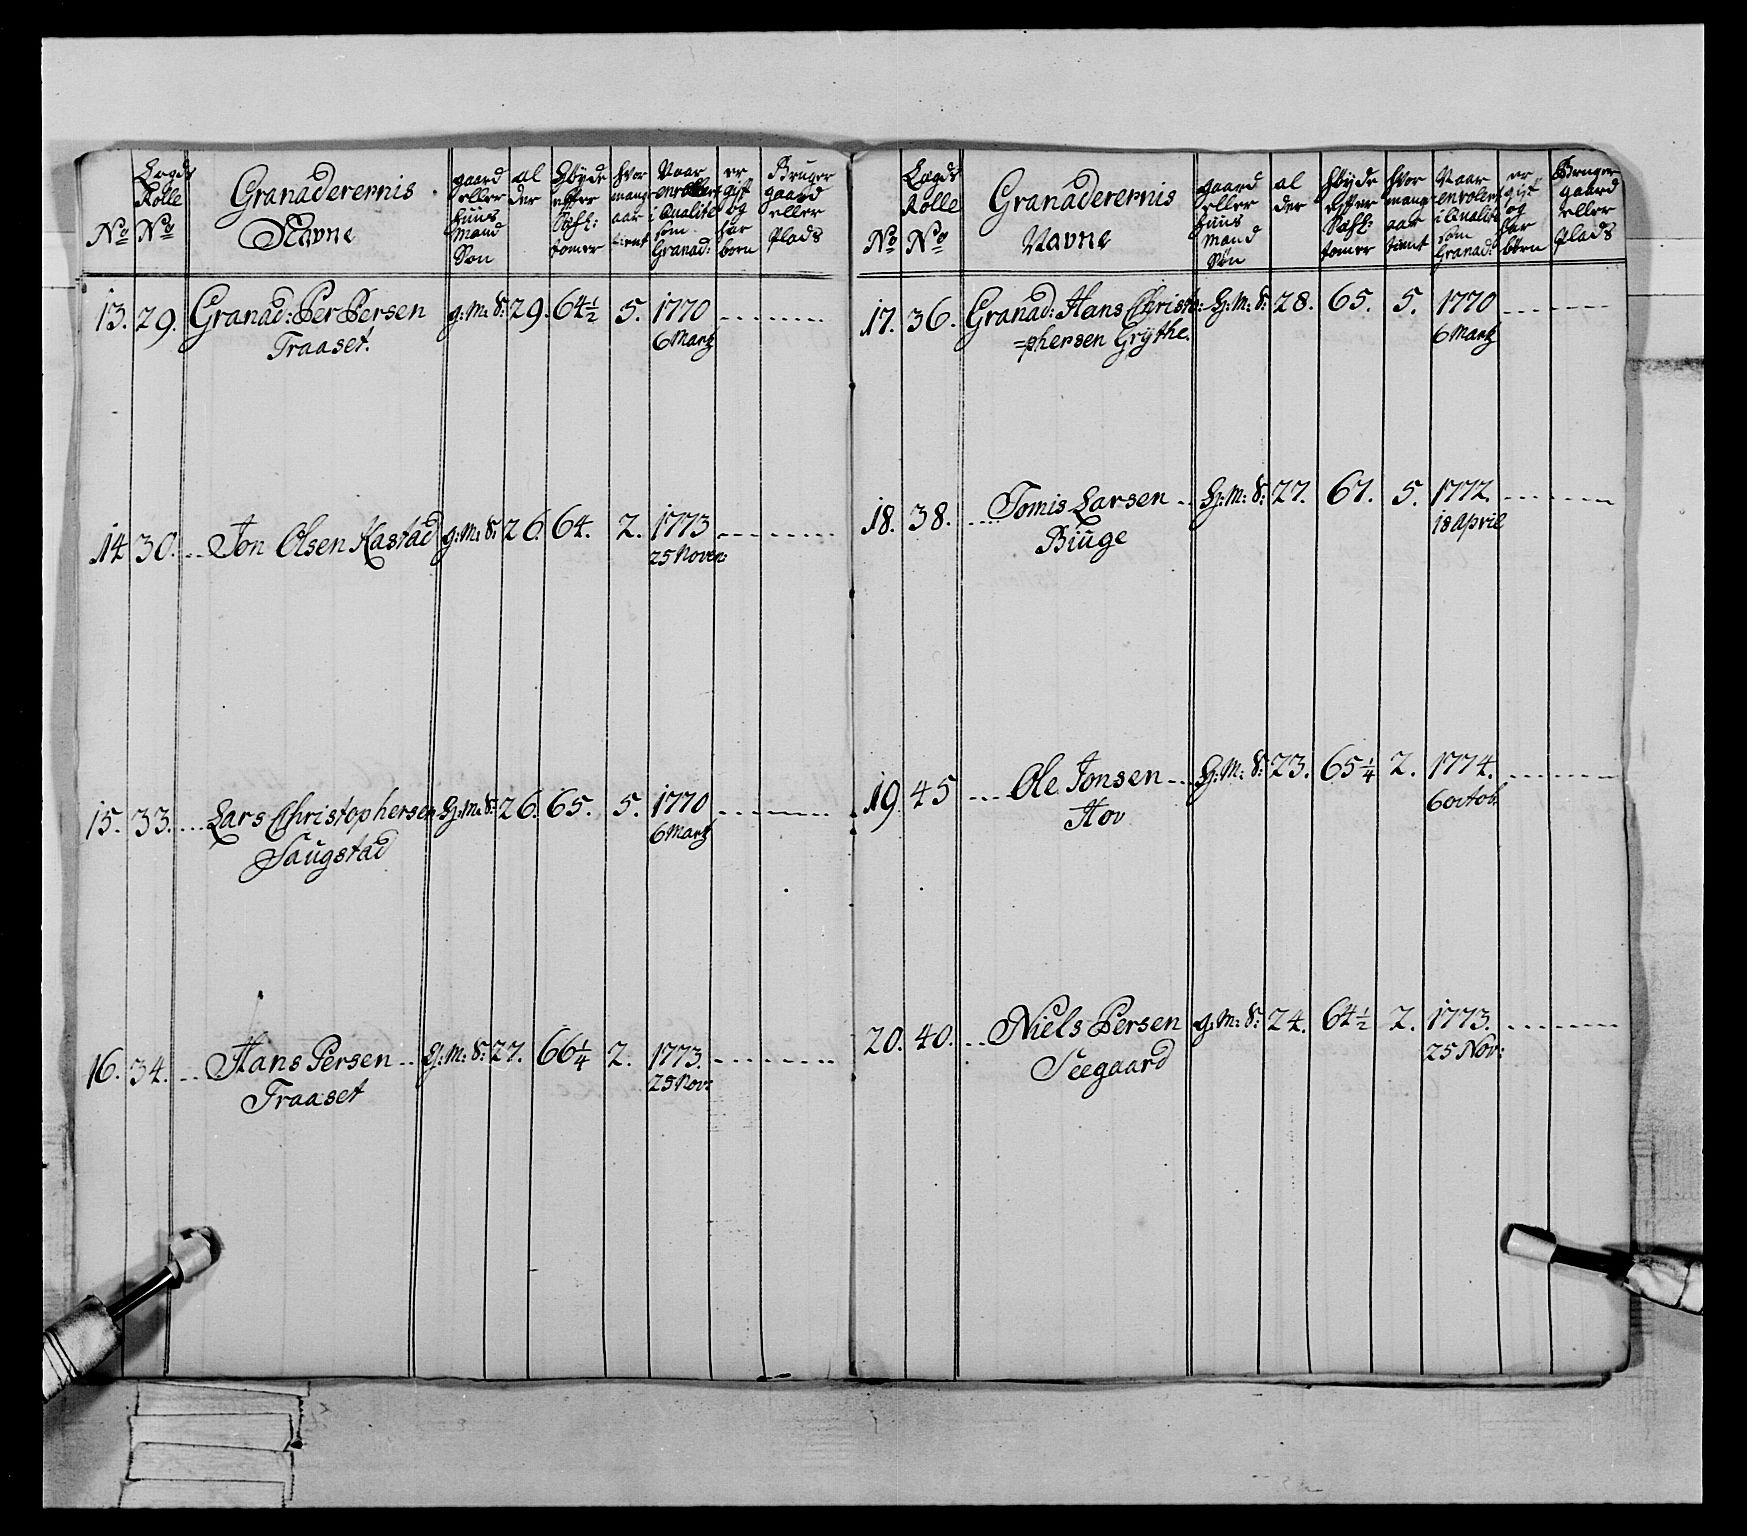 No
Lægds Rolle No
Granaderernis Navne
gaard eller huus mand Søn
al der
høyde efter
hvor mang aar tient
Naar enrollert i Qualite som Granad:
er gift og har børn
Bruger gaard eller Plads
13. 29. Granad: Per Persen g: m: S: 29. 64½ 5. 1770
Traaset. 6 Martz
14 30. Jon Olsen Kastad g: m: S: 26. 64. 2. 1773
25 Novem:
15. 33. Lars Christophersen H: m: S: 26. 65. 5. 1770
Saugstad 6 Martz
16. 34. Hans Persen g: m: S: 27. 66¼ 2. 1773.
Traaset 25 Nov:
No
Lægds Rolle No
Granaderernis Navne
gaard eller huus mand Søn
al der
høyde efter
hvor mang aar tient
Naar enrolert i Qualite som Granad:
er gift og har børn
Bruger gaard eller Plads
17. 36. Granad: Hans Christo- H: m: S: 28. 65. 5. 1770
=phersen Grythe. 6 Martz
18. 38. Tomis Larsen H: m: S: 27. 67. 5. 1772.
Biuge 18 April
19. 45 Ole Jonsen H: m: S: 23. 65¼ 2. 1774.
Hov 6 octob.
20. 40. Niels Persen g: m: S: 24. 64½ 2. 1773.
Seegaard 25 Nov: